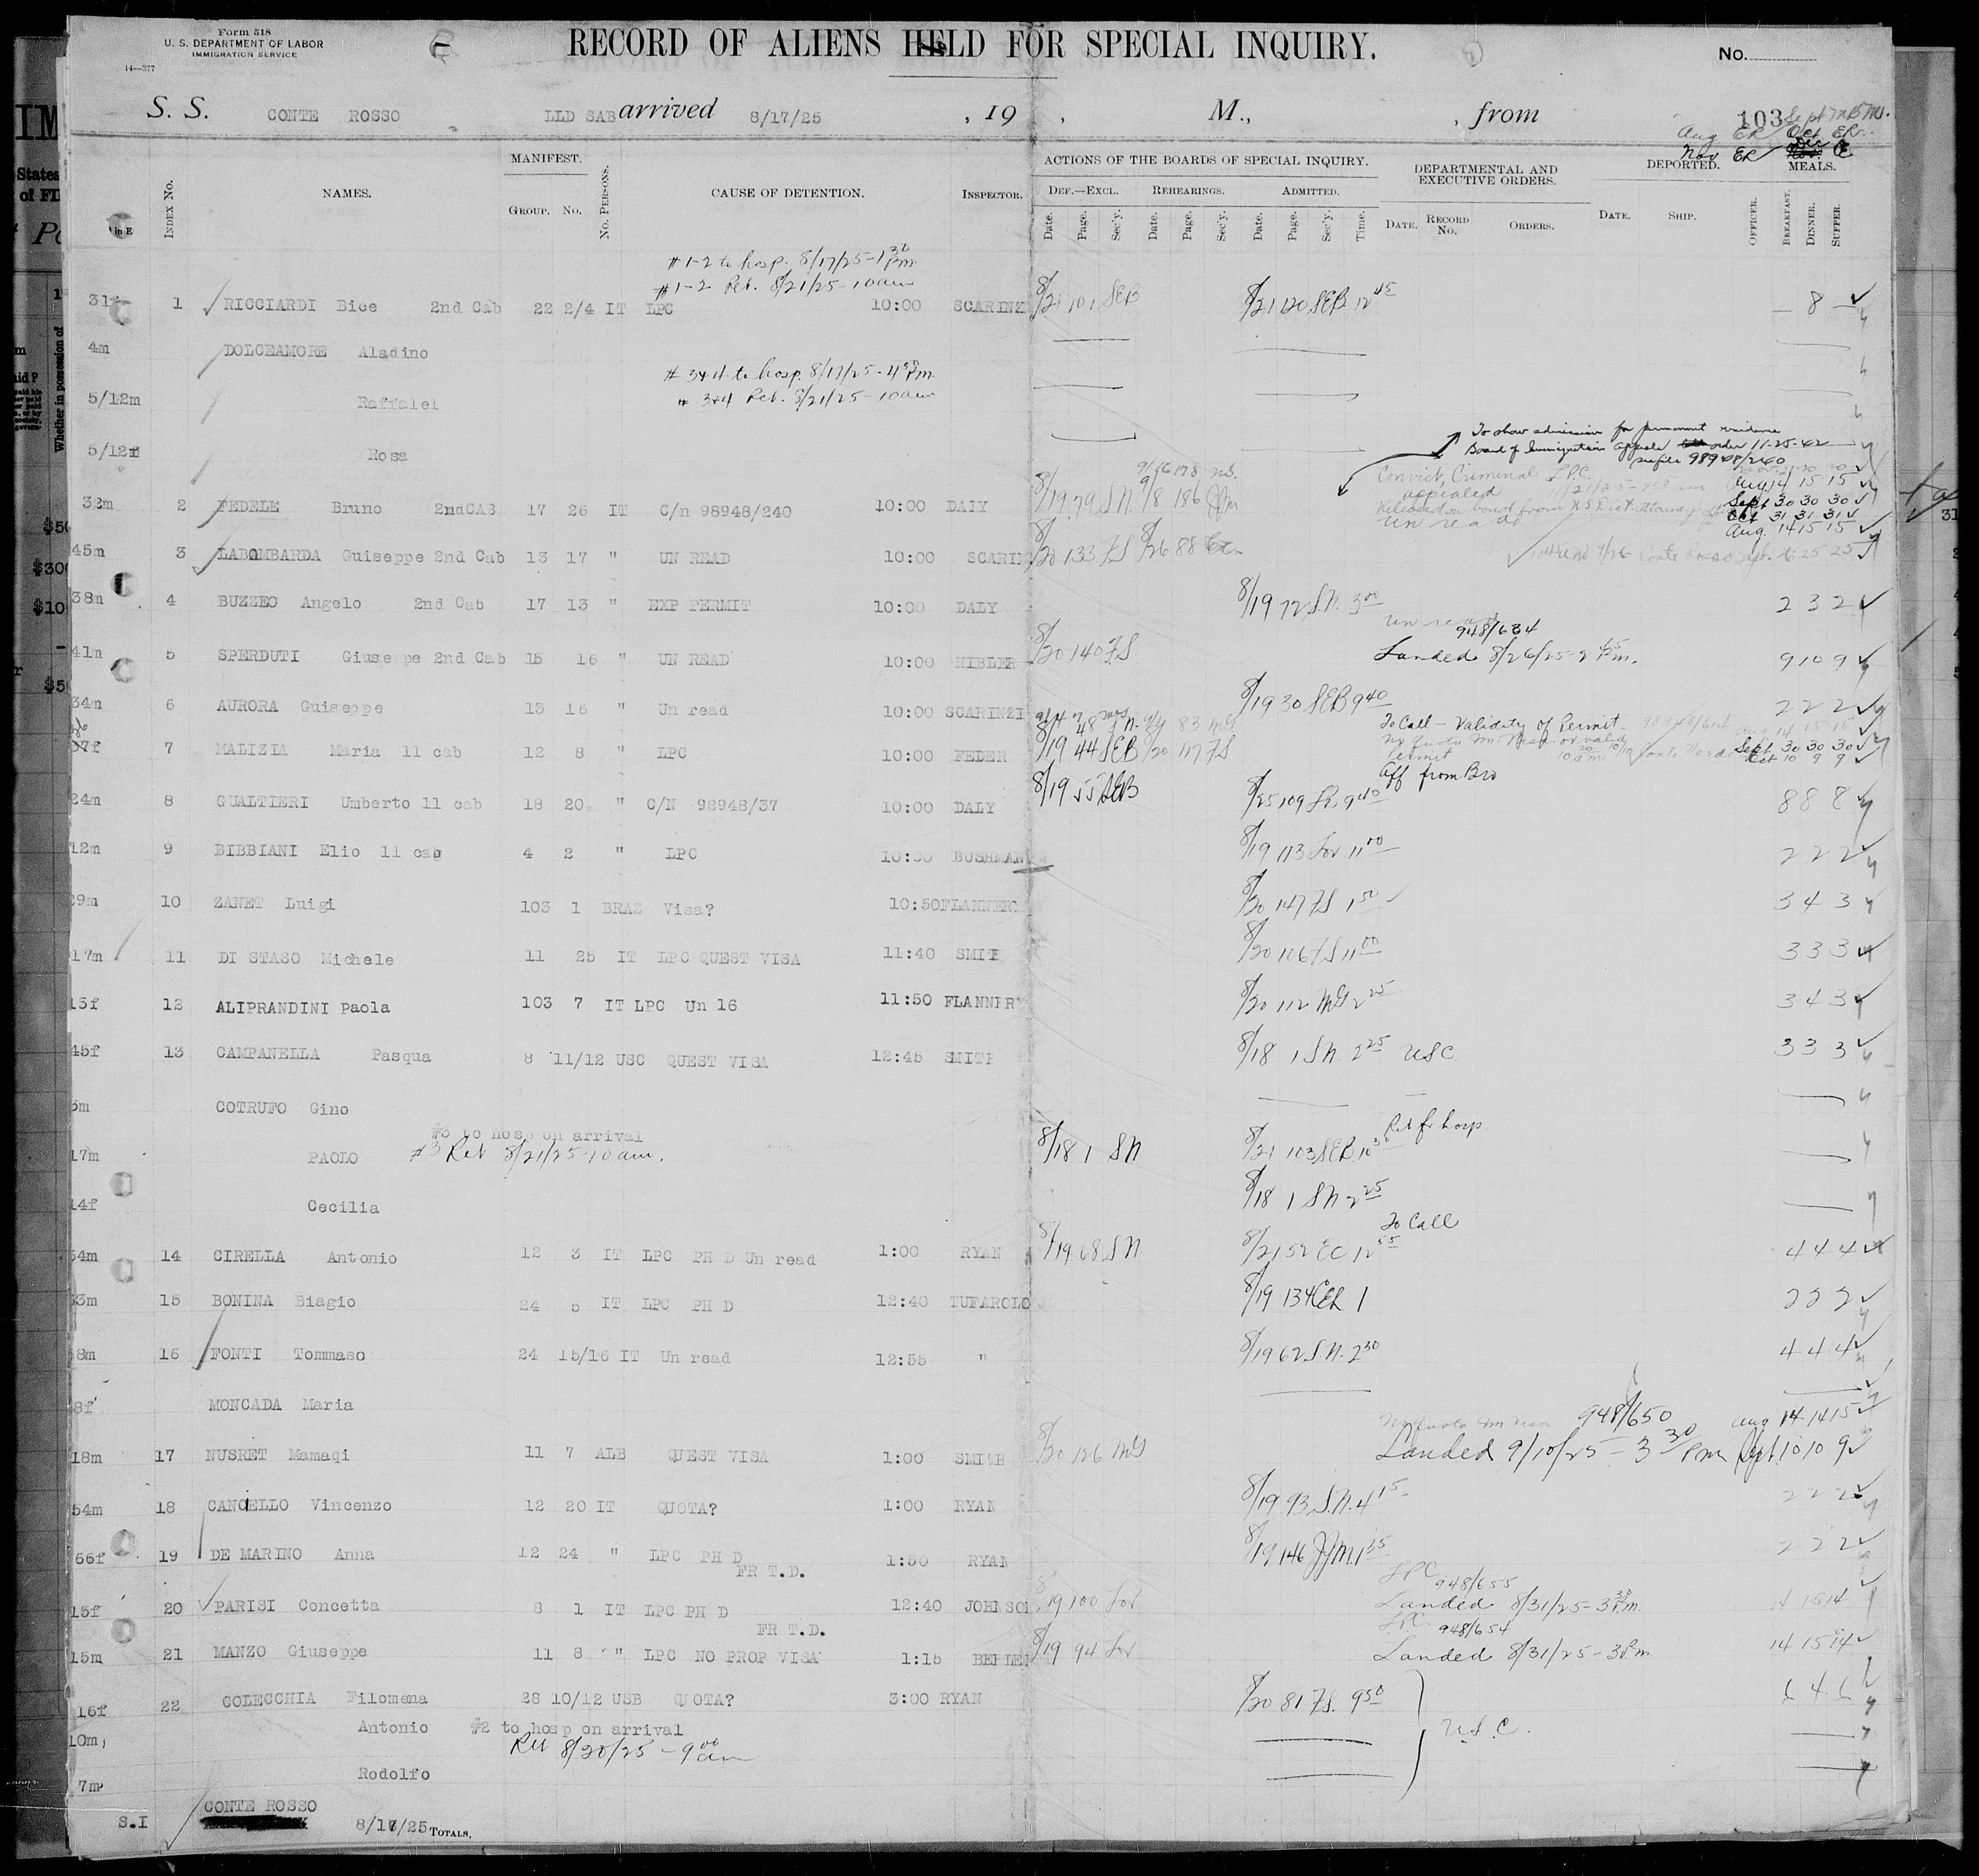 Form 518
U. S. DEPARTMENT OF LABOR
IMMIGRATION SERVICE
14—377
RECORD OF ALIENS HELD FOR SPECIAL INQUIRY.
No.
S. S. CONTE ROSSO LLD SAB arrived 8/17/25 , 19 , M., , from 103
Aug ER Oct ER
Nov ER Dec
INDEX No. NAMES. MANIFEST. GROUP. No. No. PERSONS. CAUSE OF DETENTION. INSPECTOR. ACTIONS OF THE BOARDS OF SPECIAL INQUIRY. DEF.—EXCL. REHEARINGS. ADMITTED. DEPARTMENTAL AND EXECUTIVE ORDERS. DEPORTED. MEALS.
Date. Page. Sec'y. Date. Page. Sec'y. Date. Page. Sec'y. Time. DATE. RECORD No. ORDERS. DATE. SHIP. OFFICER. BREAKFAST. DINNER. SUPPER.
#1-2 to hosp. 8/17/25-1 30 Pm
#1-2 Ret. 8/21/25-10 am
31f 1 RICCIARDI Bice 2nd Cab 22 2/4 IT LPC 10:00 SCARINZ 8/21 101 SEB 8/21 120 SEB 12 45 — 8 —
4m DOLCEAMORE Aladino
#3+4 to hosp. 8/17/25-4 30 Pm
5/12m Raffalei # 3+4 Ret. 8/21/25-10 am
To show admission for permanent residence
Board of Immigration Appeals order 11-25-42
5/12f Rosa see file 98948/240
9/16 178 ms.
Convict, Criminal LPC
appealed Aug 14 15 15
32m 2 FEDELE Bruno 2ndCAB 17 26 IT C/n 98948/240 10:00 DALY 8/19 79 S.N. 9/8 186 JJM Released on bond from U.S. Dist attorney Sept 30 30 30
Oct 31 31 31
un read Aug. 14 15 15
45m 3 LABOMBARDA Guiseppe 2nd Cab 13 17 " UN READ 10:00 SCARIN 8/20 133 FS 8/26 88 Conte Rosso Sept. 25 25
38m 4 BUZZEO Angelo 2nd Cab 17 13 " EXP PERMIT 10:00 DALY 8/19 72 S.N. 3 00 2 3 2
un read
948/634
41m 5 SPERDUTI Giuseppe 2nd Cab 15 16 " UN READ 10:00 NIBLER 8/20 140 FS Landed 8/26/25-2 45 Pm. 9 10 9
34m 6 AURORA Guiseppe 13 16 " Un read 10:00 SCARINZI 8/19 30 SEB 9 40 2 2 2
To Call — Validity of Permit
37f 7 MALIZIA Maria 11 cab 12 8 " LPC 10:00 FEDER 8/19 44 SEB 8/20 117 FS Permit Sept 30 30 30
Oct 10 9 9
Aff from Bro
24m 8 GUALTIERI Umberto 11 cab 18 20 " C/N 98948/37 10:00 DALY 8/19 55 SEB 8/25 109 9 40 8 8 8
12m 9 BIBBIANI Elio 11 cab 4 2 " LPC 10:00 BUSHMAN 8/19 113 For 11 00 2 2 2
29m 10 ZANET Luigi 103 1 BRAZ Visa? 10:50 FLANNERY 8/20 147 FS 1 50 3 4 3
17m 11 DI STASO Michele 11 25 IT LPC QUEST VISA 11:40 SMITH 8/20 106 FS 11 00 3 3 3
15f 12 ALIPRANDINI Paola 103 7 IT LPC Un 16 11:50 FLANNERY 8/20 112 MG 2 25 3 4 3
45f 13 CAMPANELLA Pasqua 8 11/12 USC QUEST VISA 12:45 SMITH 8/18 1 S.N. 2 25 USC 3 3 3
5m COTRUFO Gino
#3 to hosp on arrival Ret fr hosp
17m PAOLO #3 Ret 8/21/25-10 am. 8/18 1 SN 8/21 103 SEB 10 30
14f Cecilia 8/18 1 SN 2 25
To Call
54m 14 CIRELLA Antonio 12 3 IT LPC PH D Un read 1:00 RYAN 8/19 68 SN 8/21 52 EC 12 55 4 4 4
33m 15 BONINA Biagio 24 5 IT LPC PH D 12:40 TUFAROLO 8/19 134 1 2 2 2
8m 16 FONTI Tommaso 24 15/16 IT Un read 12:55 " 8/19 62 S.N. 2 30 4 4 4
8f MONCADA Maria
No Quota Im Visa 948/650 Aug 14 14 15
18m 17 NUSRET Mamaqi 11 7 ALB QUEST VISA 1:00 SMITH 8/20 126 MG Landed 9/10/25-3 30 Pm Sept. 10 10 9
54m 18 CANCELLO Vincenzo 12 20 IT QUOTA? 1:00 RYAN 8/19 93 S.N. 4 15 2 2 2
66f 19 DE MARINO Anna 12 24 " LPC PH D 1:50 RYAN 8/19 146 JJM 1 35 2 2 2
FR T.D. LPC 948/655
15f 20 PARISI Concetta 8 1 IT LPC PH D 12:40 JOHNSON 8/19 100 For Landed 8/31/25-3 30 Pm. 14 15 14
FR T.D. LPC 948/654
15m 21 MANZO Giuseppe 11 8 " LPC NO PROP VISA 1:15 8/19 94 For Landed 8/31/25-3 Pm 14 15 14
16f 22 COLECCHIA Filomena 28 10/12 USB QUOTA? 3:00 RYAN 8/20 81 FS. 9 50 6 4 6
10m Antonio #2 to hosp on arrival U.S.C.
Ret 8/20/25-9 00 am
7m Rodolfo
CONTE ROSSO
S.I 8/17/25 TOTALS,